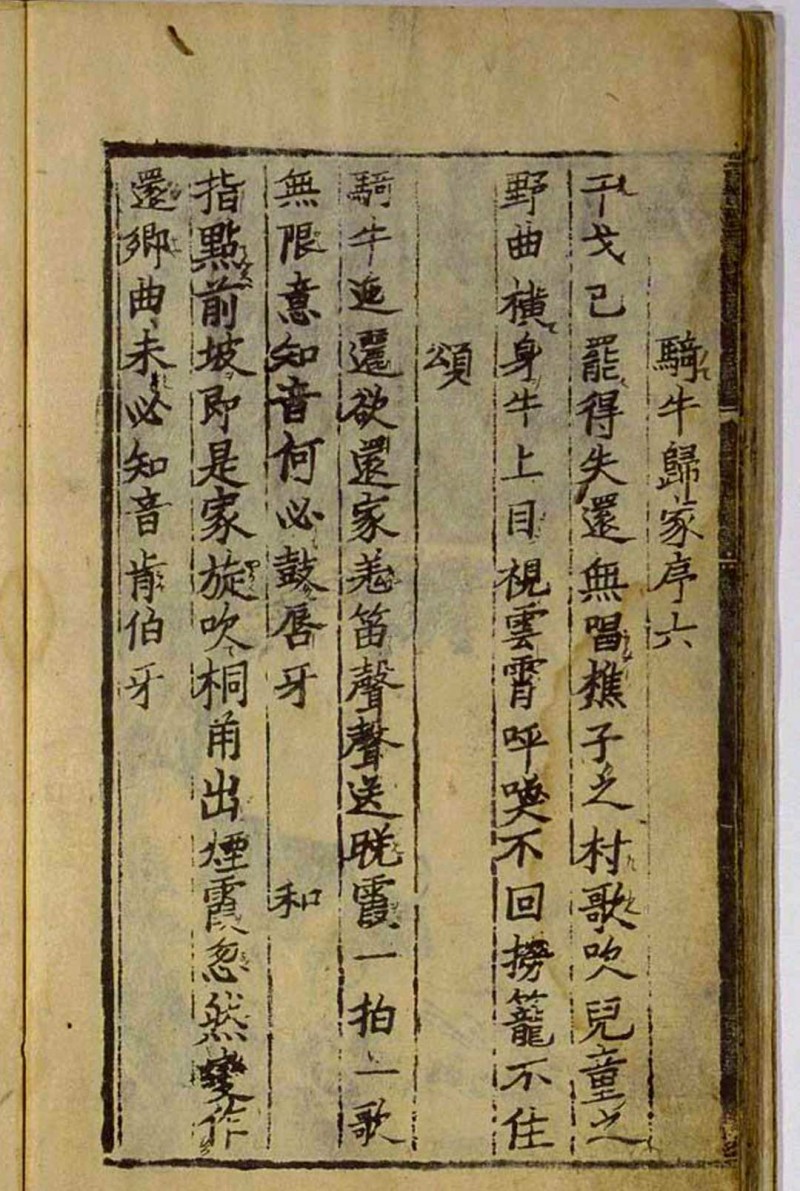 騎牛歸家序六
干戈已罷得失還無唱樵子之村歌吹兒童之
野曲橫身牛上目視雲霄呼喚不回撈籠不住
頌
騎牛迤邐欲還家羗笛聲聲送晚霞一拍一歌
無限意知音何必鼓唇牙 和
指點前坡即是家旋吹桐角出煙霞忽然變作
還鄉曲未必知音肯伯牙